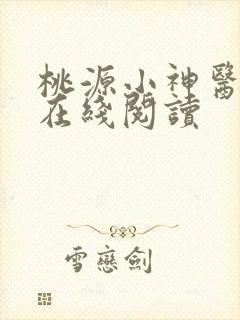 桃源小神醫
在綫閱讀
雪戀劍